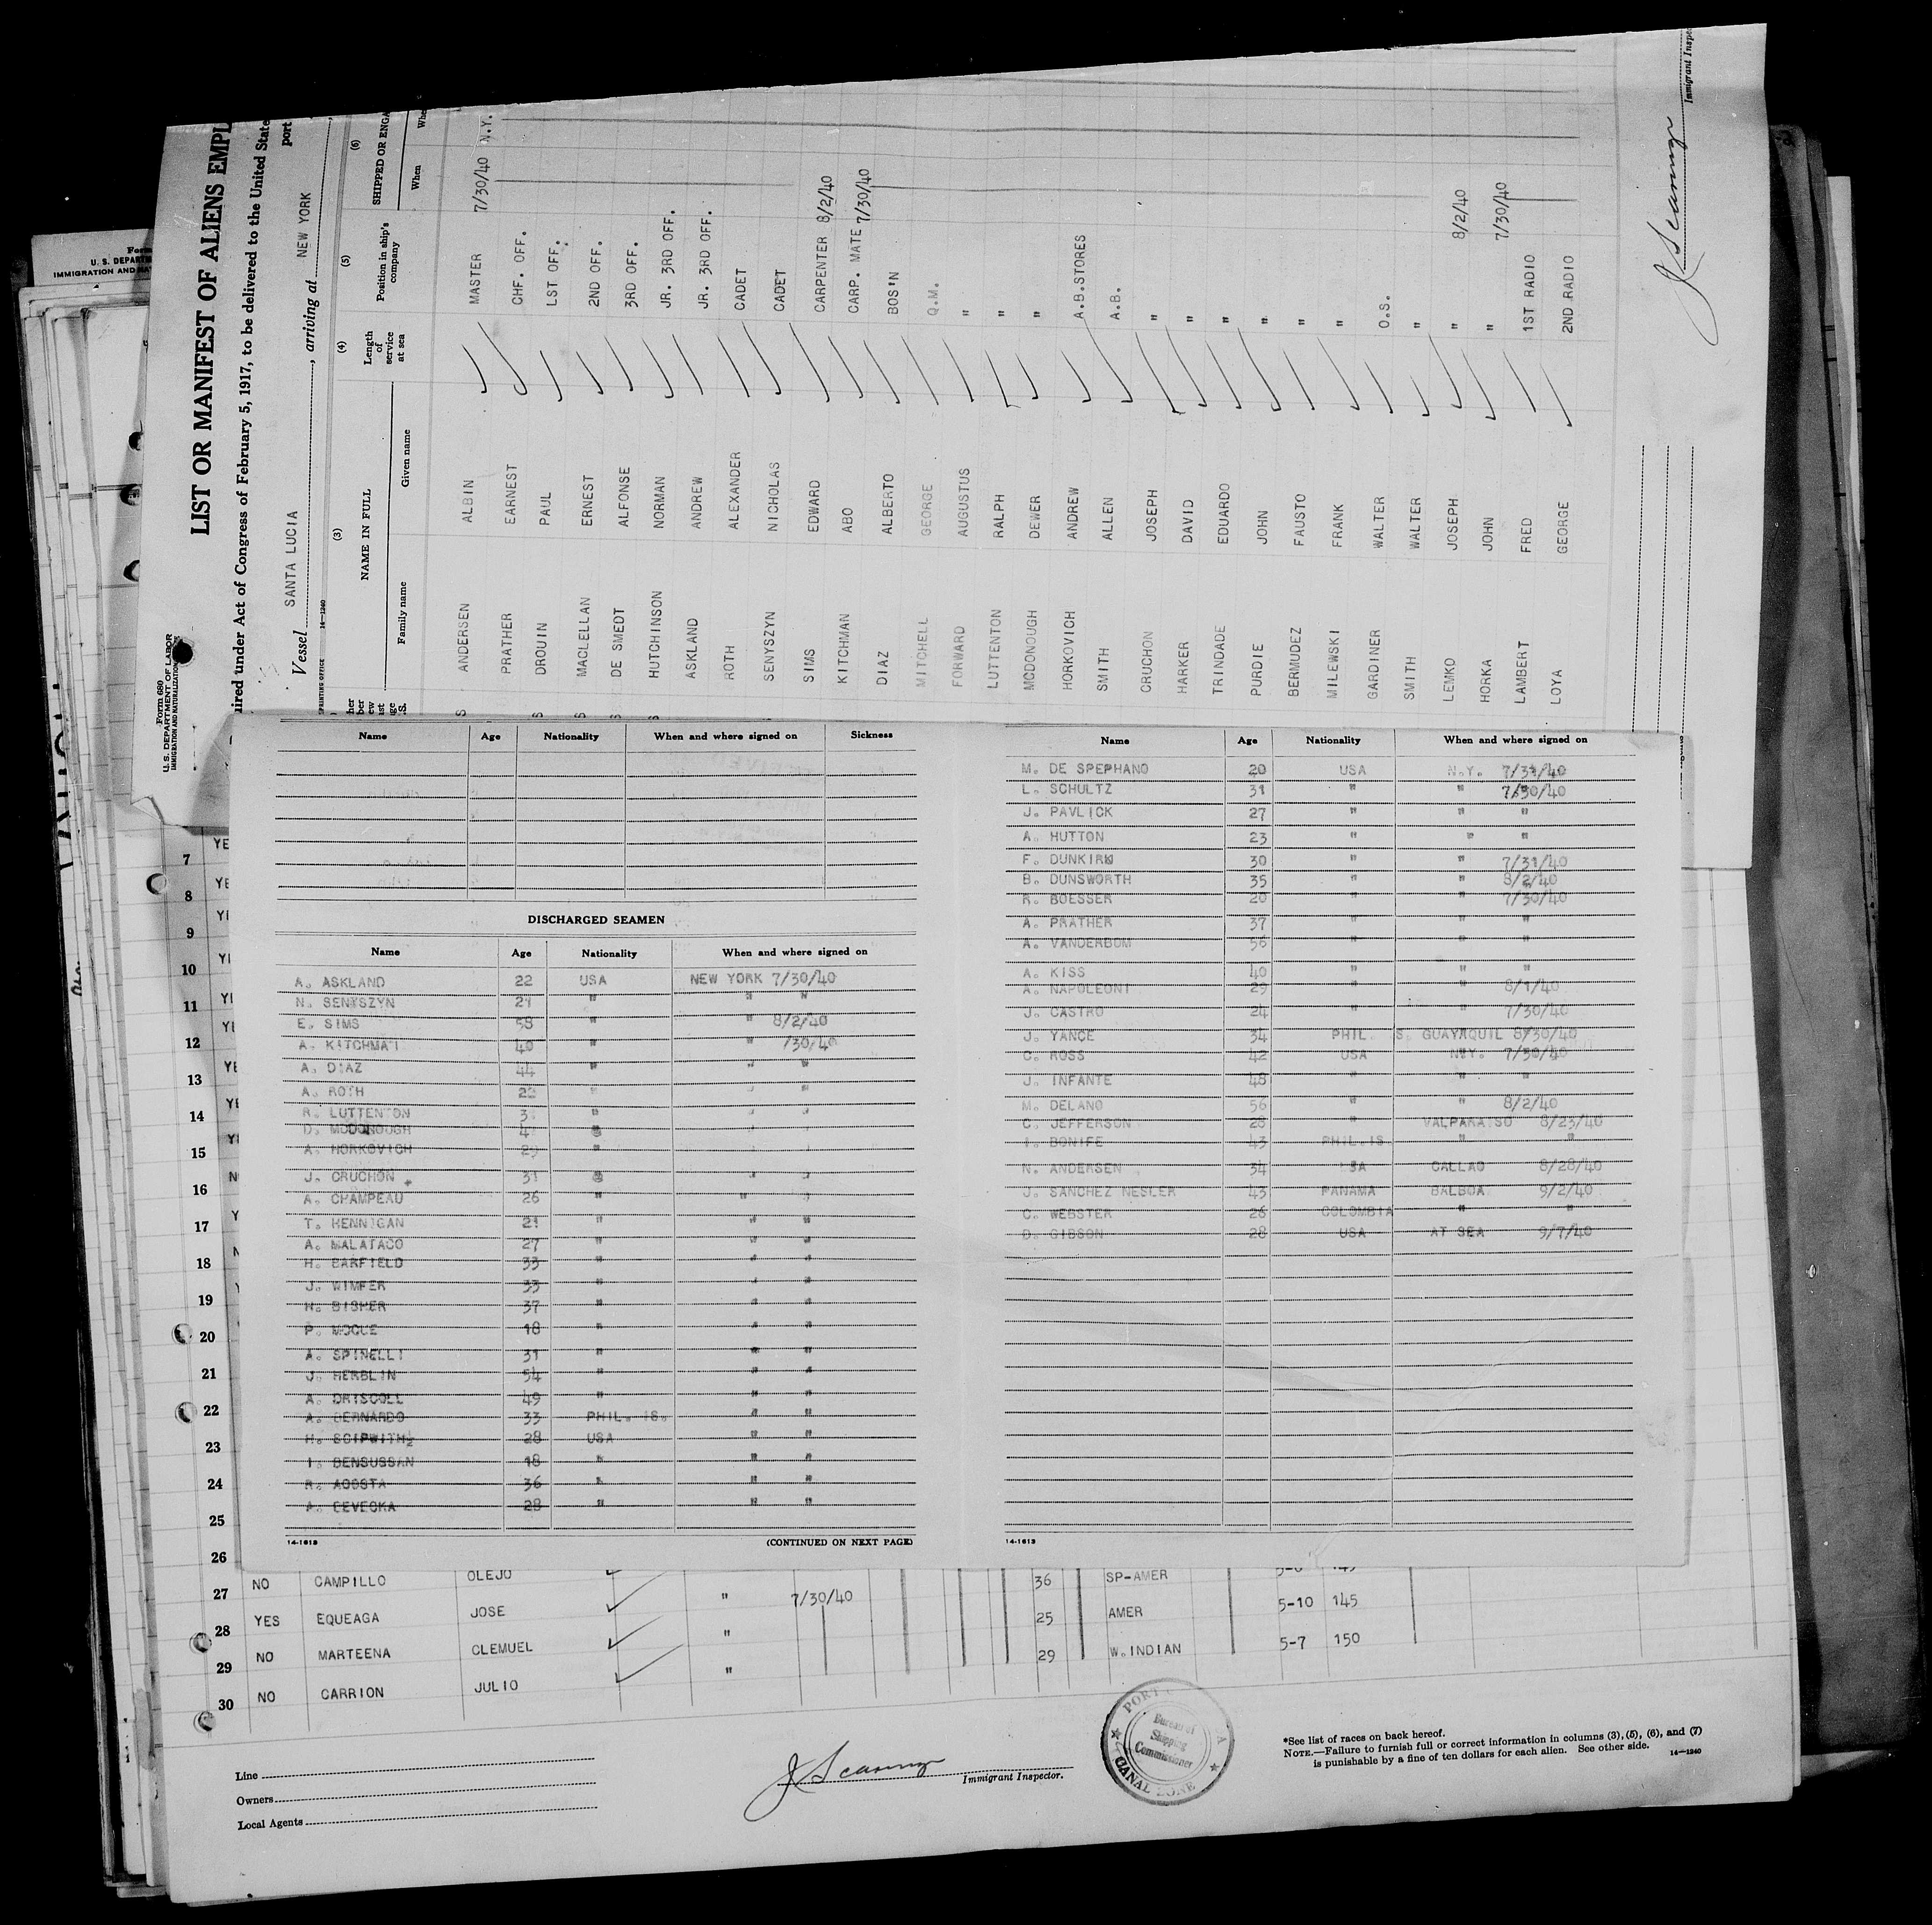 Form 680
U. S. DEPARTMENT OF LABOR
IMMIGRATION AND NATURALIZATION
LIST OR MANIFEST OF ALIENS EMPL
uired under Act of Congress of February 5, 1917, to be delivered to the United State
port
Vessel SANTA LUCIA , arriving at NEW YORK
14—1240
(3) (4) (5) (6)
NAME IN FULL Length of service at sea Position in ship's company SHIPPED OR ENGA
Family name Given name When Whe
ANDERSEN ALBIN MASTER 7/30/40 N.Y.
PRATHER EARNEST CHF. OFF.
DROUIN PAUL LST OFF.
MACLELLAN ERNEST 2ND OFF.
DE SMEDT ALFONSE 3RD OFF.
HUTCHINSON NORMAN JR. 3RD OFF.
ASKLAND ANDREW JR. 3RD OFF.
ROTH ALEXANDER CADET
SENYSZYN NICHOLAS CADET
SIMS EDWARD CARPENTER 8/2/40
KITCHMAN ABO CARP. MATE 7/30/40
DIAZ ALBERTO BOS'N
MITCHELL GEORGE Q.M.
FORWARD AUGUSTUS "
LUTTENTON RALPH "
MCDONOUGH DEWER "
HORKOVICH ANDREW A.B.STORES
SMITH ALLEN A.B.
CRUCHON JOSEPH "
HARKER DAVID "
TRINDADE EDUARDO "
PURDIE JOHN "
BERMUDEZ FAUSTO "
MILEWSKI FRANK "
GARDINER WALTER O.S.
SMITH WALTER "
LEMKO JOSEPH " 8/2/40
HORKA JOHN " 7/30/40
LAMBERT FRED 1ST RADIO
LOYA GEORGE 2ND RADIO
Immigrant Inspe
Form
U. S. DEPARTM
IMMIGRATION AND NAT
Name Age Nationality When and where signed on Sickness
DISCHARGED SEAMEN
Name Age Nationality When and where signed on
A. ASKLAND 22 USA NEW YORK 7/30/40
N. SENYSZYN 21 " " "
E. SIMS 58 " " 8/2/40
A. KITCHMAN 40 " " /30/40
A. DIAZ 44 " " "
A. ROTH " " "
R. LUTTENTON " " "
D. MCDONOUGH " "
A. HORKOVICH 29 " " "
J. CRUCHON 31 " " "
A. CHAMPEAU 26 " " "
T. HENNIGAN 21 " " "
A. MALATACO 27 " " "
H. BARFIELD 33 " " "
J. WIMFER 33 " " "
H. BISHER 37 " " "
P. MOGUE 18 " " "
A. SPINELLI 31 " " "
J. HERBLIN 54 " " "
A. DRISCOLL 49 " " "
A. BERNARDO 33 PHIL. IS. " "
H. SCIPWITH 28 USA " "
I. BENSUSSAN 18 " " "
R. ACOSTA 36 " " "
A. CEVECKA 28 " " "
14-1613 (CONTINUED ON NEXT PAGE)
Name Age Nationality When and where signed on
M. DE SPEPHANO 20 USA N.Y. 7/31/40
L. SCHULTZ 31 " " 7/30/40
J. PAVLICK 27 " " "
A. HUTTON 23 " " "
F. DUNKIRK 30 " " 7/31/40
B. DUNSWORTH 35 " " 8/2/40
R. BOESSER 20 " " 7/30/40
A. PRATHER 37 " " "
A. VANDERBOM 56 " " "
A. KISS 40 " " "
A. NAPOLEONI 29 " " 8/1/40
J. CASTRO 24 " " 7/30/40
J. YANCE 34 PHIL. S. GUAYAQUIL 8/30/40
C. ROSS 42 USA N.Y. 7/30/40
J. INFANTE 48 " " "
M. DELANO 56 " " 8/2/40
C. JEFFERSON 28 " VALPARAISO 8/23/40
I. BONIFE 43 PHIL.IS " "
N. ANDERSEN 34 USA CALLAO 8/28/40
J. SANCHEZ NESLER 43 PANAMA BALBOA 9/2/40
C. WEBSTER 26 COLOMBIA " "
D. GIBSON 28 USA AT SEA 9/7/40
14-1613
7 YE
8 YE
9 YE
10 YE
11 YE
12 YE
13 YE
14 YE
15 YE
16 N
17 Y
18 N
19 Y
20
21
22
23
24
25
26
27 NO CAMPILLO OLEJO 36 SP-AMER
28 YES EQUEAGA JOSE " 7/30/40 25 AMER 5-10 145
29 NO MARTEENA CLEMUEL " 29 W.INDIAN 5-7 150
30 NO CARRION JULIO "
Line
Owners
Local Agents
Immigrant Inspector.
PORT
Bureau of
Shipping
Commissioner
CANAL ZONE
*See list of races on back hereof.
NOTE.—Failure to furnish full or correct information in columns (3), (5), (6), and (7)
is punishable by a fine of ten dollars for each alien. See other side. 14—1240